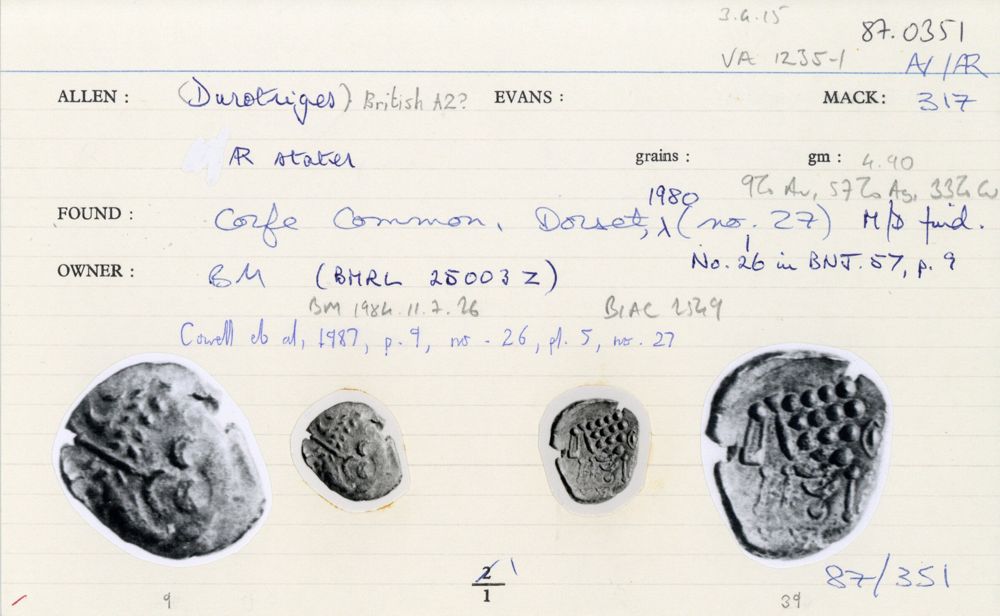 3.4.15
87.0351
VA 1235-1 AV/AR
ALLEN : (Durotriges) British A2? EVANS : MACK: 317
AR stater grains : gm : 4.90
9% Au, 57% Ag, 33% Cu
1980
FOUND : Corfe Common, Dorset, λ (no. 27) M/D find.
No. 26 in BNJ. 57, p. 9
OWNER : BM (BMRL 25003Z)
BM 1984.11.7.26 BIAC 2549
Cowell et al, 1987, p. 9, no. 26, pl. 5, no. 27
2 1
1
87/351
9 39